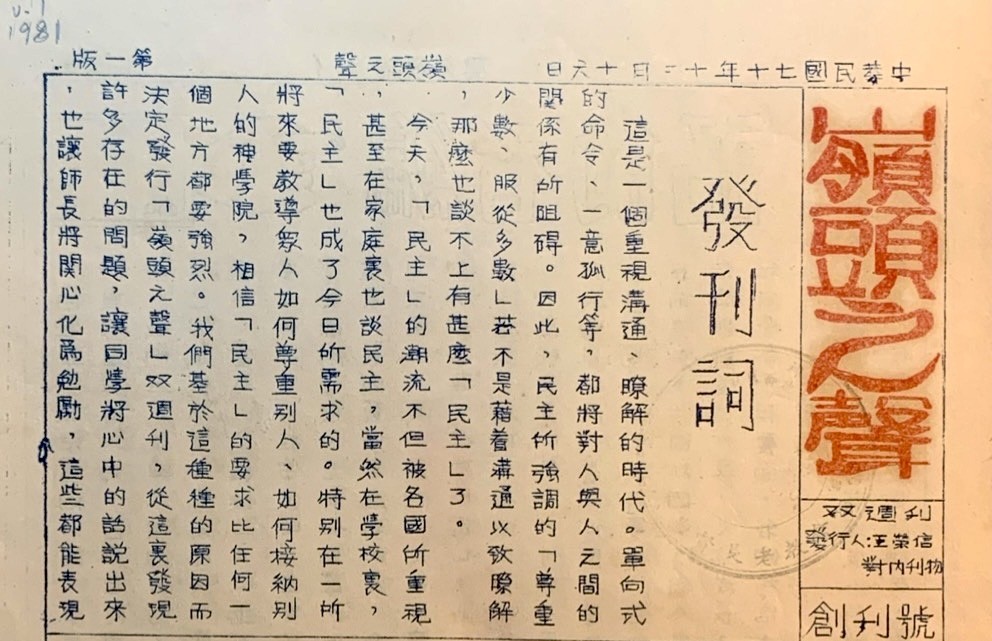 v.1
1981
中華民國七十年十二月十六日
嶺頭之聲
第一版
嶺頭之聲
双週刊
發行人:汪榮信
對內刊物
創刊號
發刊詞
這是一個重視溝通、瞭解的時代。單向式
的命令、一意孤行等,都將對人與人之間的
関係有所阻碍。因此,民主所強調的「尊重
少數、服從多數」若不是藉着溝通以致瞭解
,那麼也談不上有甚麼「民主」了。
今天,「民主」的潮流不但被各國所重視
,甚至在家庭裏也談民主,當然在學校裏,
「民主」也成了今日所需求的。特別在一所
將來要教導衆人如何尊重別人、如何接納別
人的神學院,相信「民主」的要求比任何一
個地方都要強烈。我們基於這種種的原因而
決定發行「嶺頭之聲」双週刊,從這裏發現
許多存在的問題,讓同學將心中的話說出來
,也讓師長將関心化爲勉勵,這些都能表現